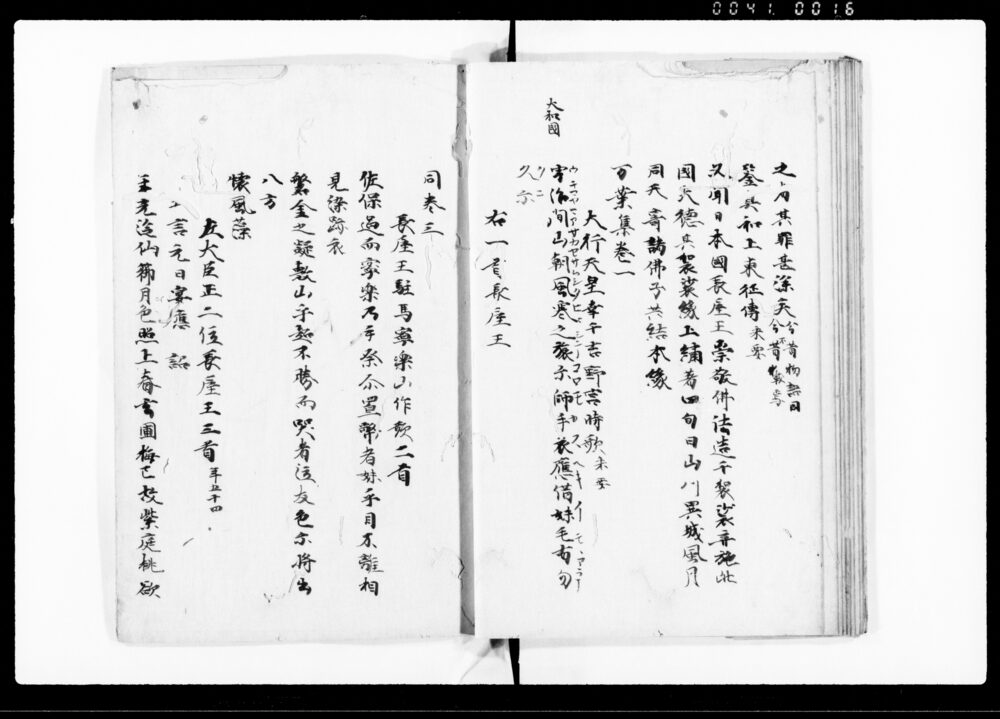 0041 0016
大和國
之内其罪甚深矣
鑒真和上東征傳
又聞日本國長屋王崇敬佛法造千袈裟弃施此
國大德其袈裟緣上繡著四句曰山川異域風月
同天寄諸佛子共結來緣
万葉集卷一
大行天皇幸于吉野宮時歌
宇治間山朝風寒之旅尓師手衣應借妹毛有勿
久尓
右一首長屋王
同卷三
長屋王駐馬寧樂山作歌二首
佐保過而寧樂乃手祭尓置幣者妹乎目不離相
見染跡衣
磐金之凝敷山乎超不勝而哭者泣友色尓將出
八方
懷風藻
左大臣正二位長屋王三首 年五十四
五言元日宴應 詔
年光泛仙籞月色照上春玄圃梅已放紫庭桃欲